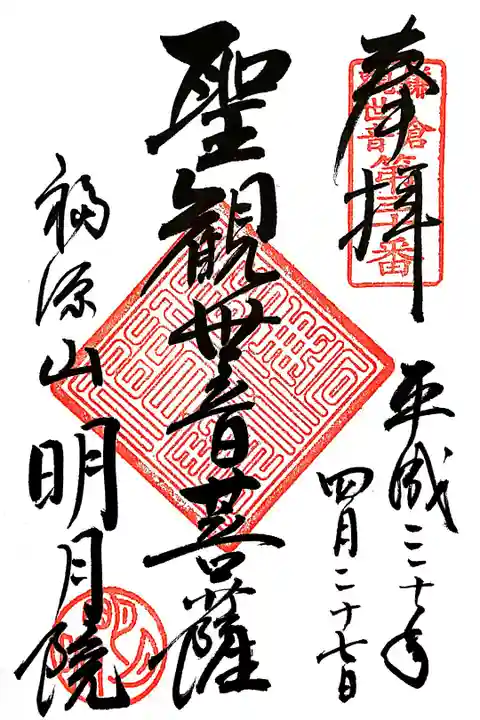 奉拝
鎌倉
観世音
第三十番
平成三十年
四月二十七日
聖観世音菩薩
福源山 明月院